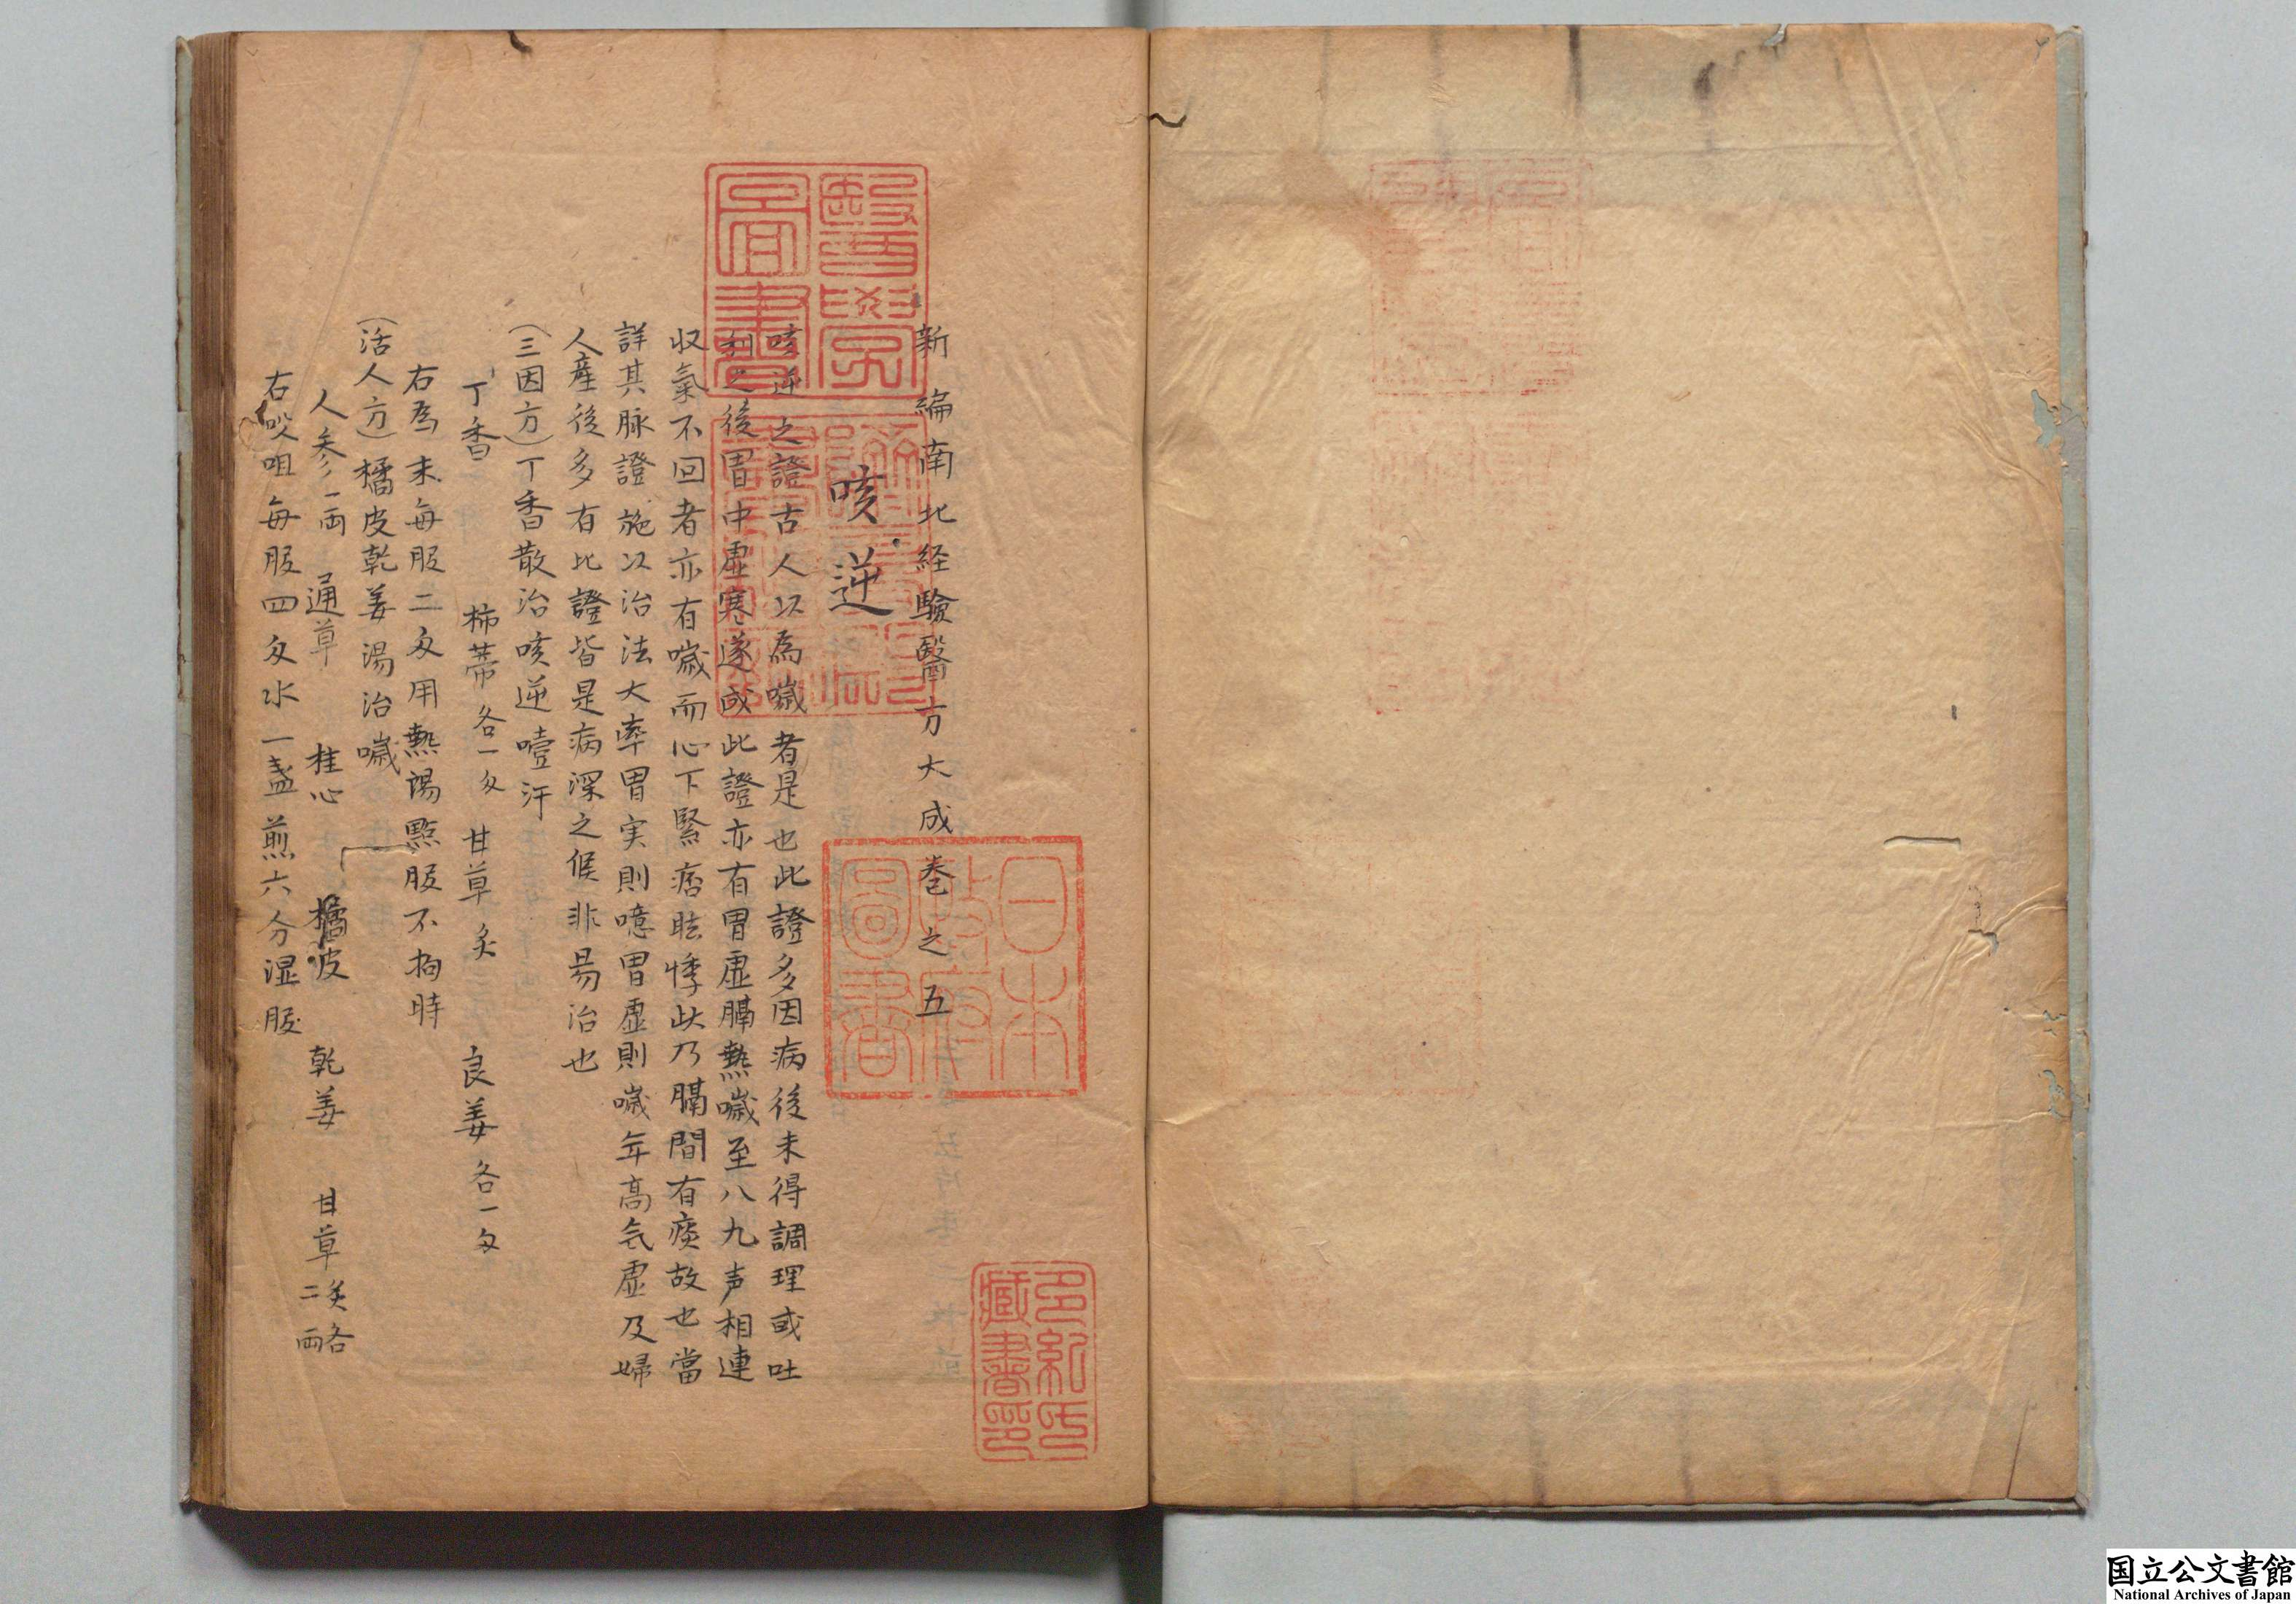 新編南北経驗醫方大成卷之五
咳逆
咳逆之證古人以為噦者是也此證多因病後未得調理或吐
利之後胃中虚寒遂成此證亦有胃虚膈熱噦至八九声相連
収氣不回者亦有噦而心下緊痞眩悸此乃膈間有痰故也當
詳其脉證施以治法大率胃実則噫胃虚則噦年高気虚及婦
人産後多有比證皆是病深之候非易治也
(三因方)丁香散治咳逆噎汗
丁香 柿蒂各一匁 甘草炙 良姜各一匁
右為末每服二匁用熱湯點服不拘時
(活人方)橘皮乾姜湯治噦
人参一両 通草 桂心 橘皮 乾姜 甘草炙各二両
右㕮咀每服四匁水一盞煎六分湿服
醫學圖書
躋壽殿書籍記
日本政府圖書
多紀氏藏書印
国立公文書館
National Archives of Japan